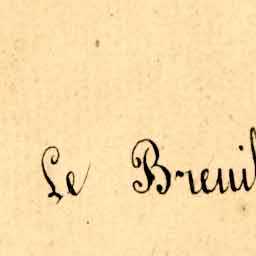 Le Breuil